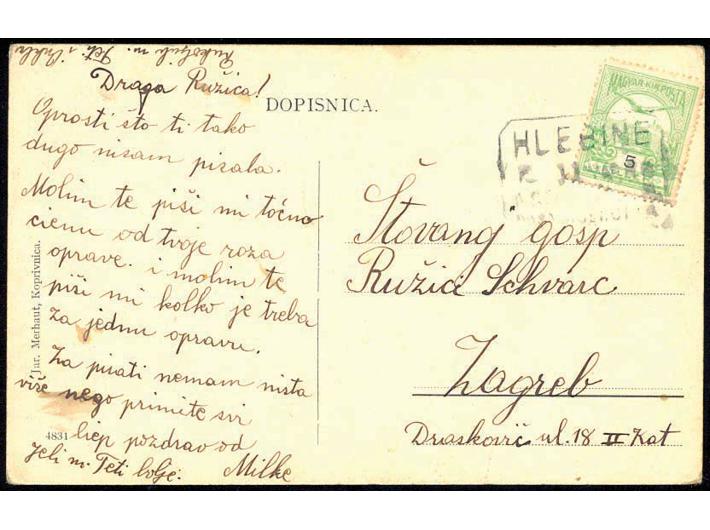 Rukoljub m. Teti i
Draga Ružica!
DOPISNICA.
Oprosti što ti tako
dugo nisam pisala.
Molim te piši mi točno
cienu od tvoje roza
oprave. i molim te
piši mi kolko je treba
za jednu opravu.
Za pisati nemam ništa
više nego primite svi
liep pozdrav od
Milke
Jeli m. Teti bolje:
4831
Jar. Merhaut, Koprivnica.
MAGYAR KIR. POSTA
5
HLEBINE
Štovanj gosp
Ružica Schvarc
Zagreb
Draskovič ul. 18 II Kat